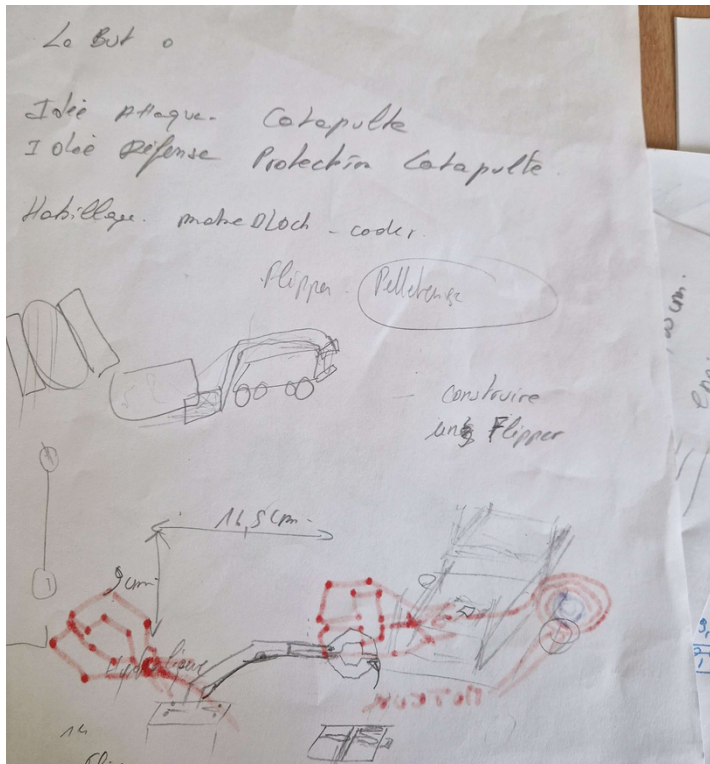 Le But o
Idée Attaque. Catapulte
Idée Défense Protection Catapulte.
Habillage. - coder.
Flipper. Pelleteuse
construire
Flipper
14,5 cm.
9cm
Hydrolique
MOTEUR
14
00 cm.